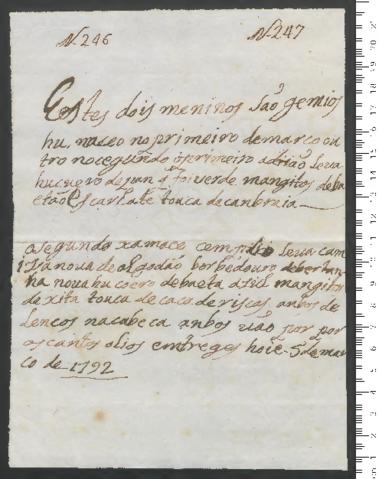 N. 246 N. 247
Estes dois meninos são gemios
hu, naceo no primeiro de marco ou
tro no cegundo o primeiro adrião leva
hu cuero de pan foi verde mangitos de ba
etão Escarlate touca de canbraia
a segunda xamace leva cam
iza nova de algodão
nova hu coero de baeta azul mangitos
de xita touca de caca de riscos anbos de
lencos na cabeca anbos vão por por
os cantos olios emtreges hoie 5 de mar
co de 1792